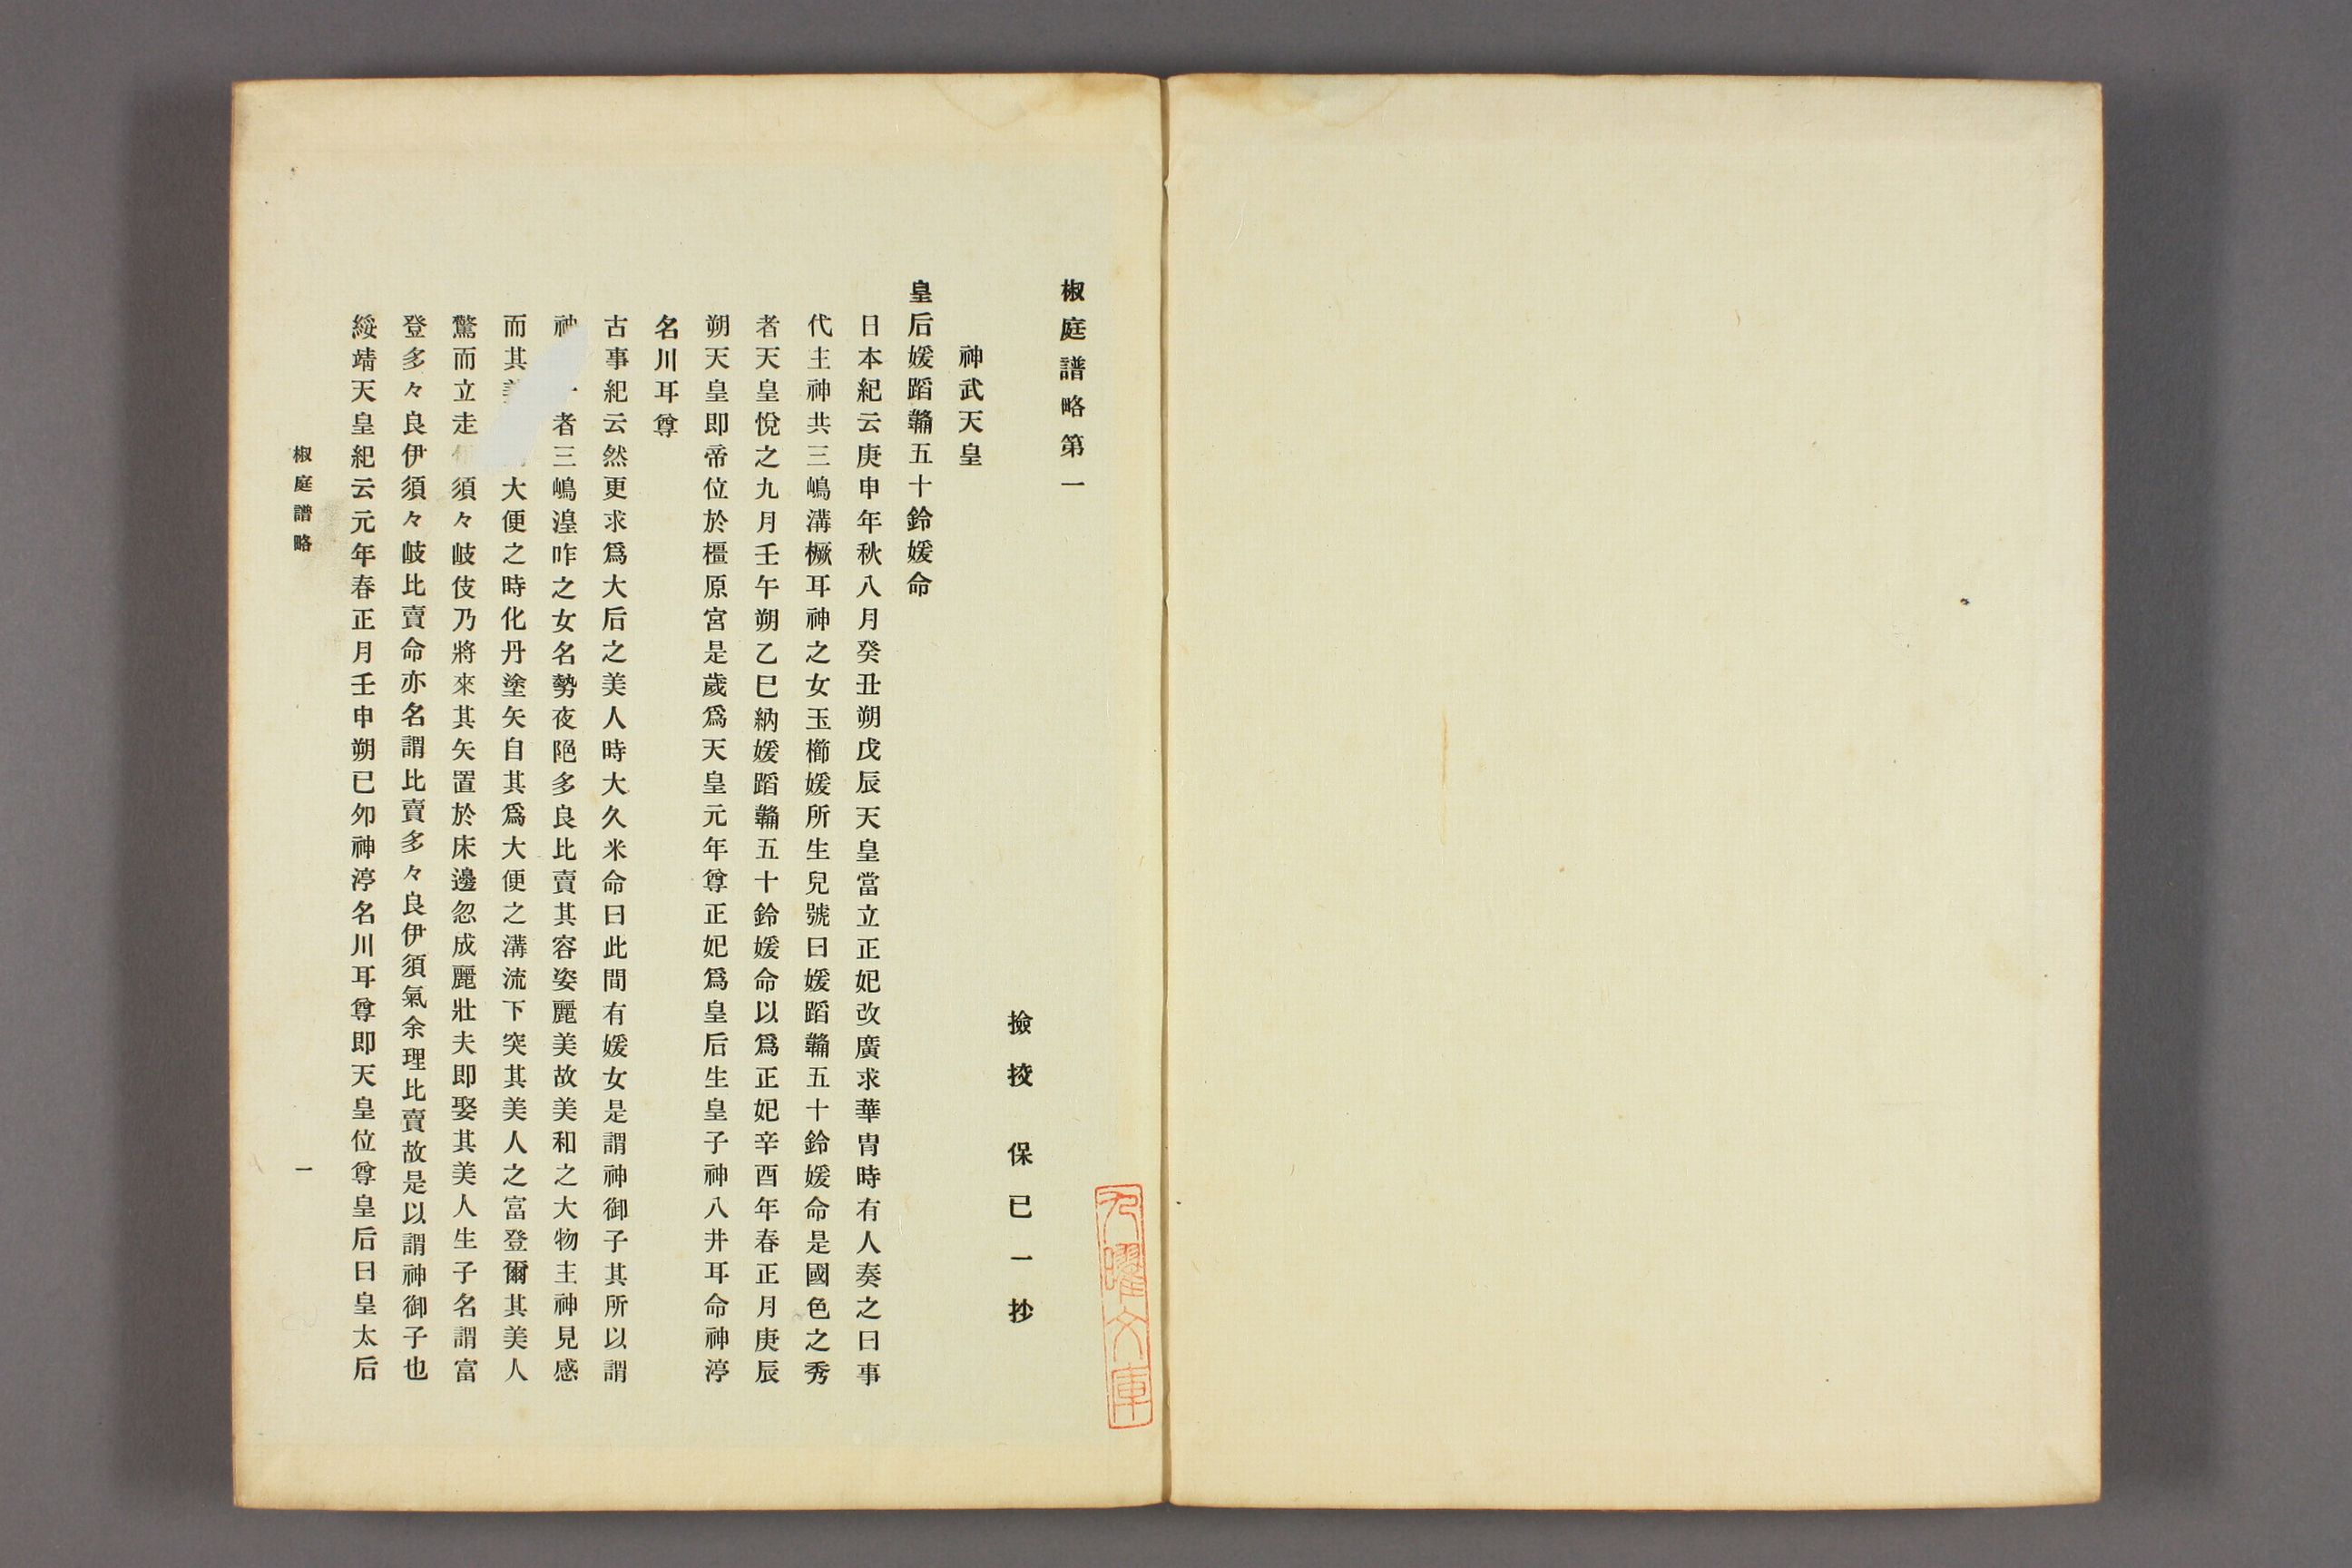 椒庭譜略第一
撿挍 保已一抄
神武天皇
皇后媛蹈鞴五十鈴媛命
日本紀云庚申年秋八月癸丑朔戊辰天皇當立正妃改廣求華冑時有人奏之曰事
代主神共三嶋溝橛耳神之女玉櫛媛所生兒號曰媛蹈鞴五十鈴媛命是國色之秀
者天皇悅之九月壬午朔乙巳納媛蹈鞴五十鈴媛命以爲正妃辛酉年春正月庚辰
朔天皇即帝位於橿原宮是歲爲天皇元年尊正妃爲皇后生皇子神八井耳命神渟
名川耳尊
古事紀云然更求爲大后之美人時大久米命曰此間有媛女是謂神御子其所以謂
神者三嶋湟咋之女名勢夜陁多良比賣其容姿麗美故美和之大物主神見感
而其大便之時化丹塗矢自其爲大便之溝流下突其美人之富登爾其美人
驚而立走須々岐伎乃將來其矢置於床邊忽成麗壯夫即娶其美人生子名謂富
登多々良伊須々岐比賣命亦名謂比賣多々良伊須氣余理比賣故是以謂神御子也
綏靖天皇紀云元年春正月壬申朔已夘神渟名川耳尊即天皇位尊皇后曰皇太后
椒庭譜略 一
九曜文庫